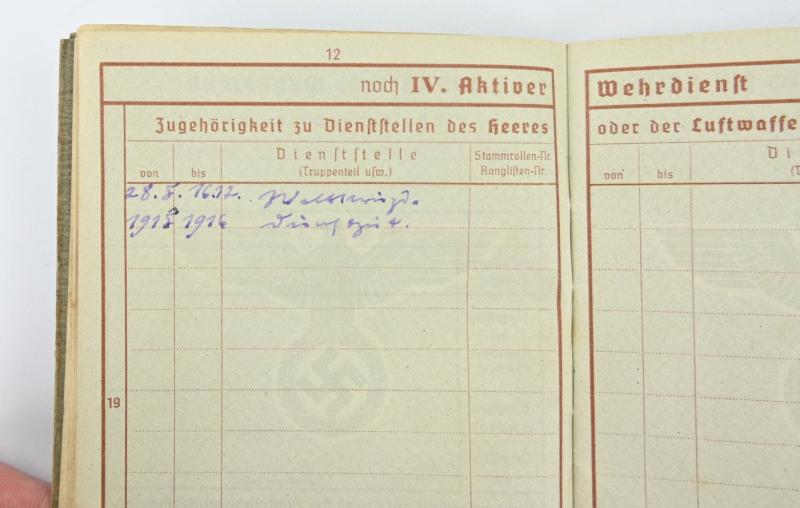 12
noch IV. Aktiver
Wehrdienst
Zugehörigkeit zu Dienststellen des Heeres
oder der Luftwaffe
von
bis
Dienststelle
(Truppenteil usw.)
Stammrollen-Nr.
Ranglisten-Nr.
von
bis
Di
(T
28. 8. 16.12.
191 191
Dienstzeit.
19